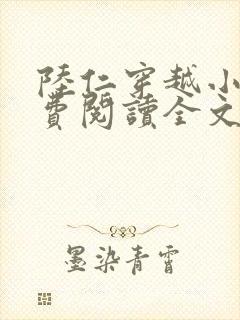 陸仁穿越小
費閱讀全文
墨染青霄